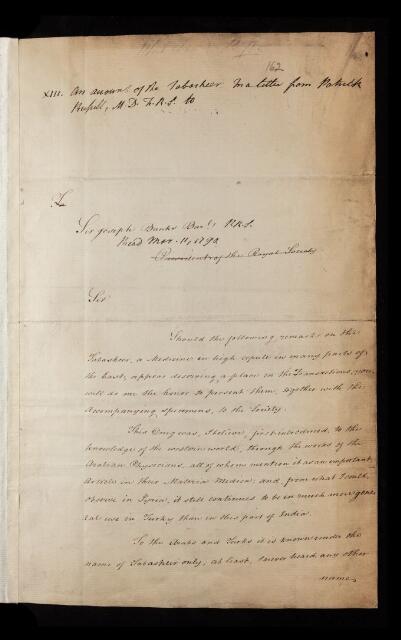 162
XIII. An account of the Tabasheer. In a letter from Patrick
Russell, M.D. F.R.S. to
To
Sir Joseph Banks Bart. P.R.S.
Read Mar. 11, 1790
President of the Royal Society
Sir
Should the following remarks on the
Tabasheer, a Medicine in high repute in many parts of
the East, appear deserving a place in the Transactions, you
will do me the honor to present them, together with the
Accompanying specimens, to the Society.
This Drug was, I believe, first introduced, to the
knowledge of the western world, through the works of the
Arabian Physicians, all of whom mention it as an important
Article in their Materia Medica; and, from what I could
observe in Syria, it still continues to be in much more gene
ral use in Turky than in this part of India.
To the Arabs and Turks it is known under the
name of Tabasheer only; at least, I never heard any other
name,